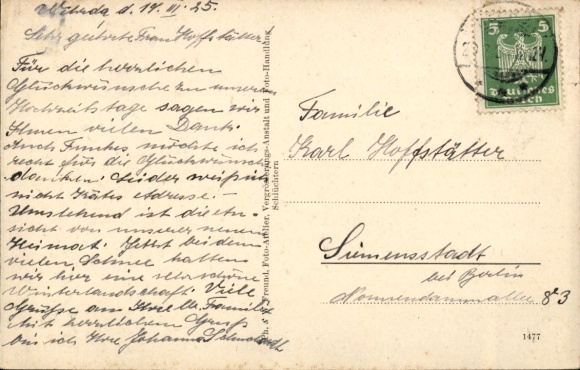 Wehrda d. 17. III. 25.
Sehr geehrte Frau Hoffstätter!
Für die herzlichen
Glückwünsche zu unserem
Hochzeitstage sagen wir
Ihnen vielen Dank.
Auch Funkes möchte ich
recht für die Glückwünsche
danken. Leider weiß ich
nicht Kätes Adresse. –
Umstehend ist die An-
sicht von unserer neuen
Heimat. Jetzt bei dem
vielen Schnee hatten
wir hier eine sehr schöne
Winterlandschaft. Viele
Grüsse an Ihre Familie
Mit herzlichem Gruß
bin ich Ihre Johanna
Freund, Foto-Atelier, Vergrößerungs-Anstalt und Foto-Handlung
Schlüchtern
5 5
Deutsches
Reich
Familie
Karl Hoffstätter
Siemensstadt
bei Berlin
Nonnendammallee 83
1477